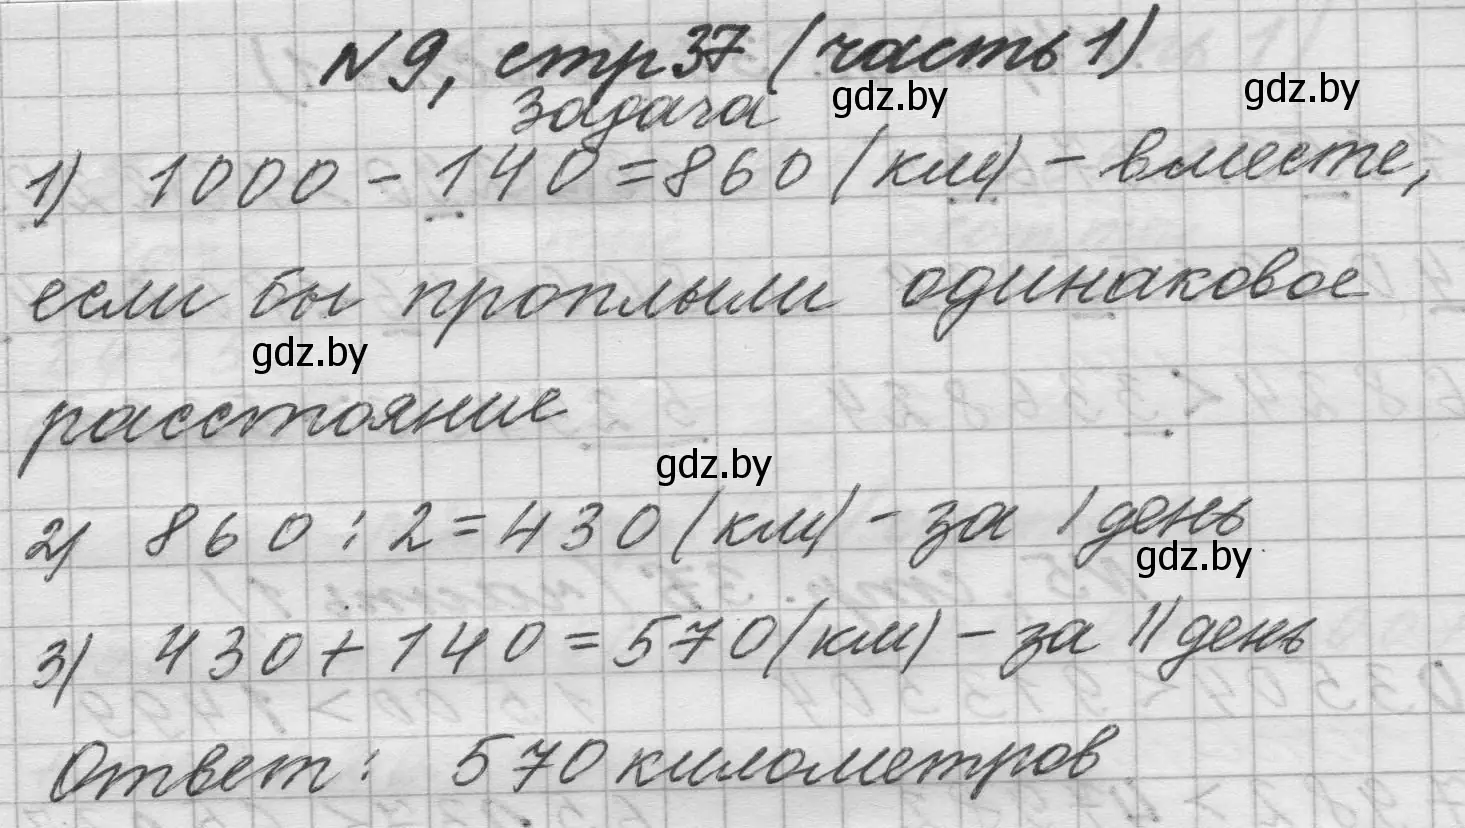 №9, стр 37 (часть 1)
gdz.by
gdz.by
Задача
1) 1000 - 140 = 860 (км) - вместе,
если бы проплыли одинаковое
gdz.by
расстояние
gdz.by
2) 860 : 2 = 430 (км) - за I день
gdz.by
3) 430 + 140 = 570 (км) - за II день
Ответ: 570 километров